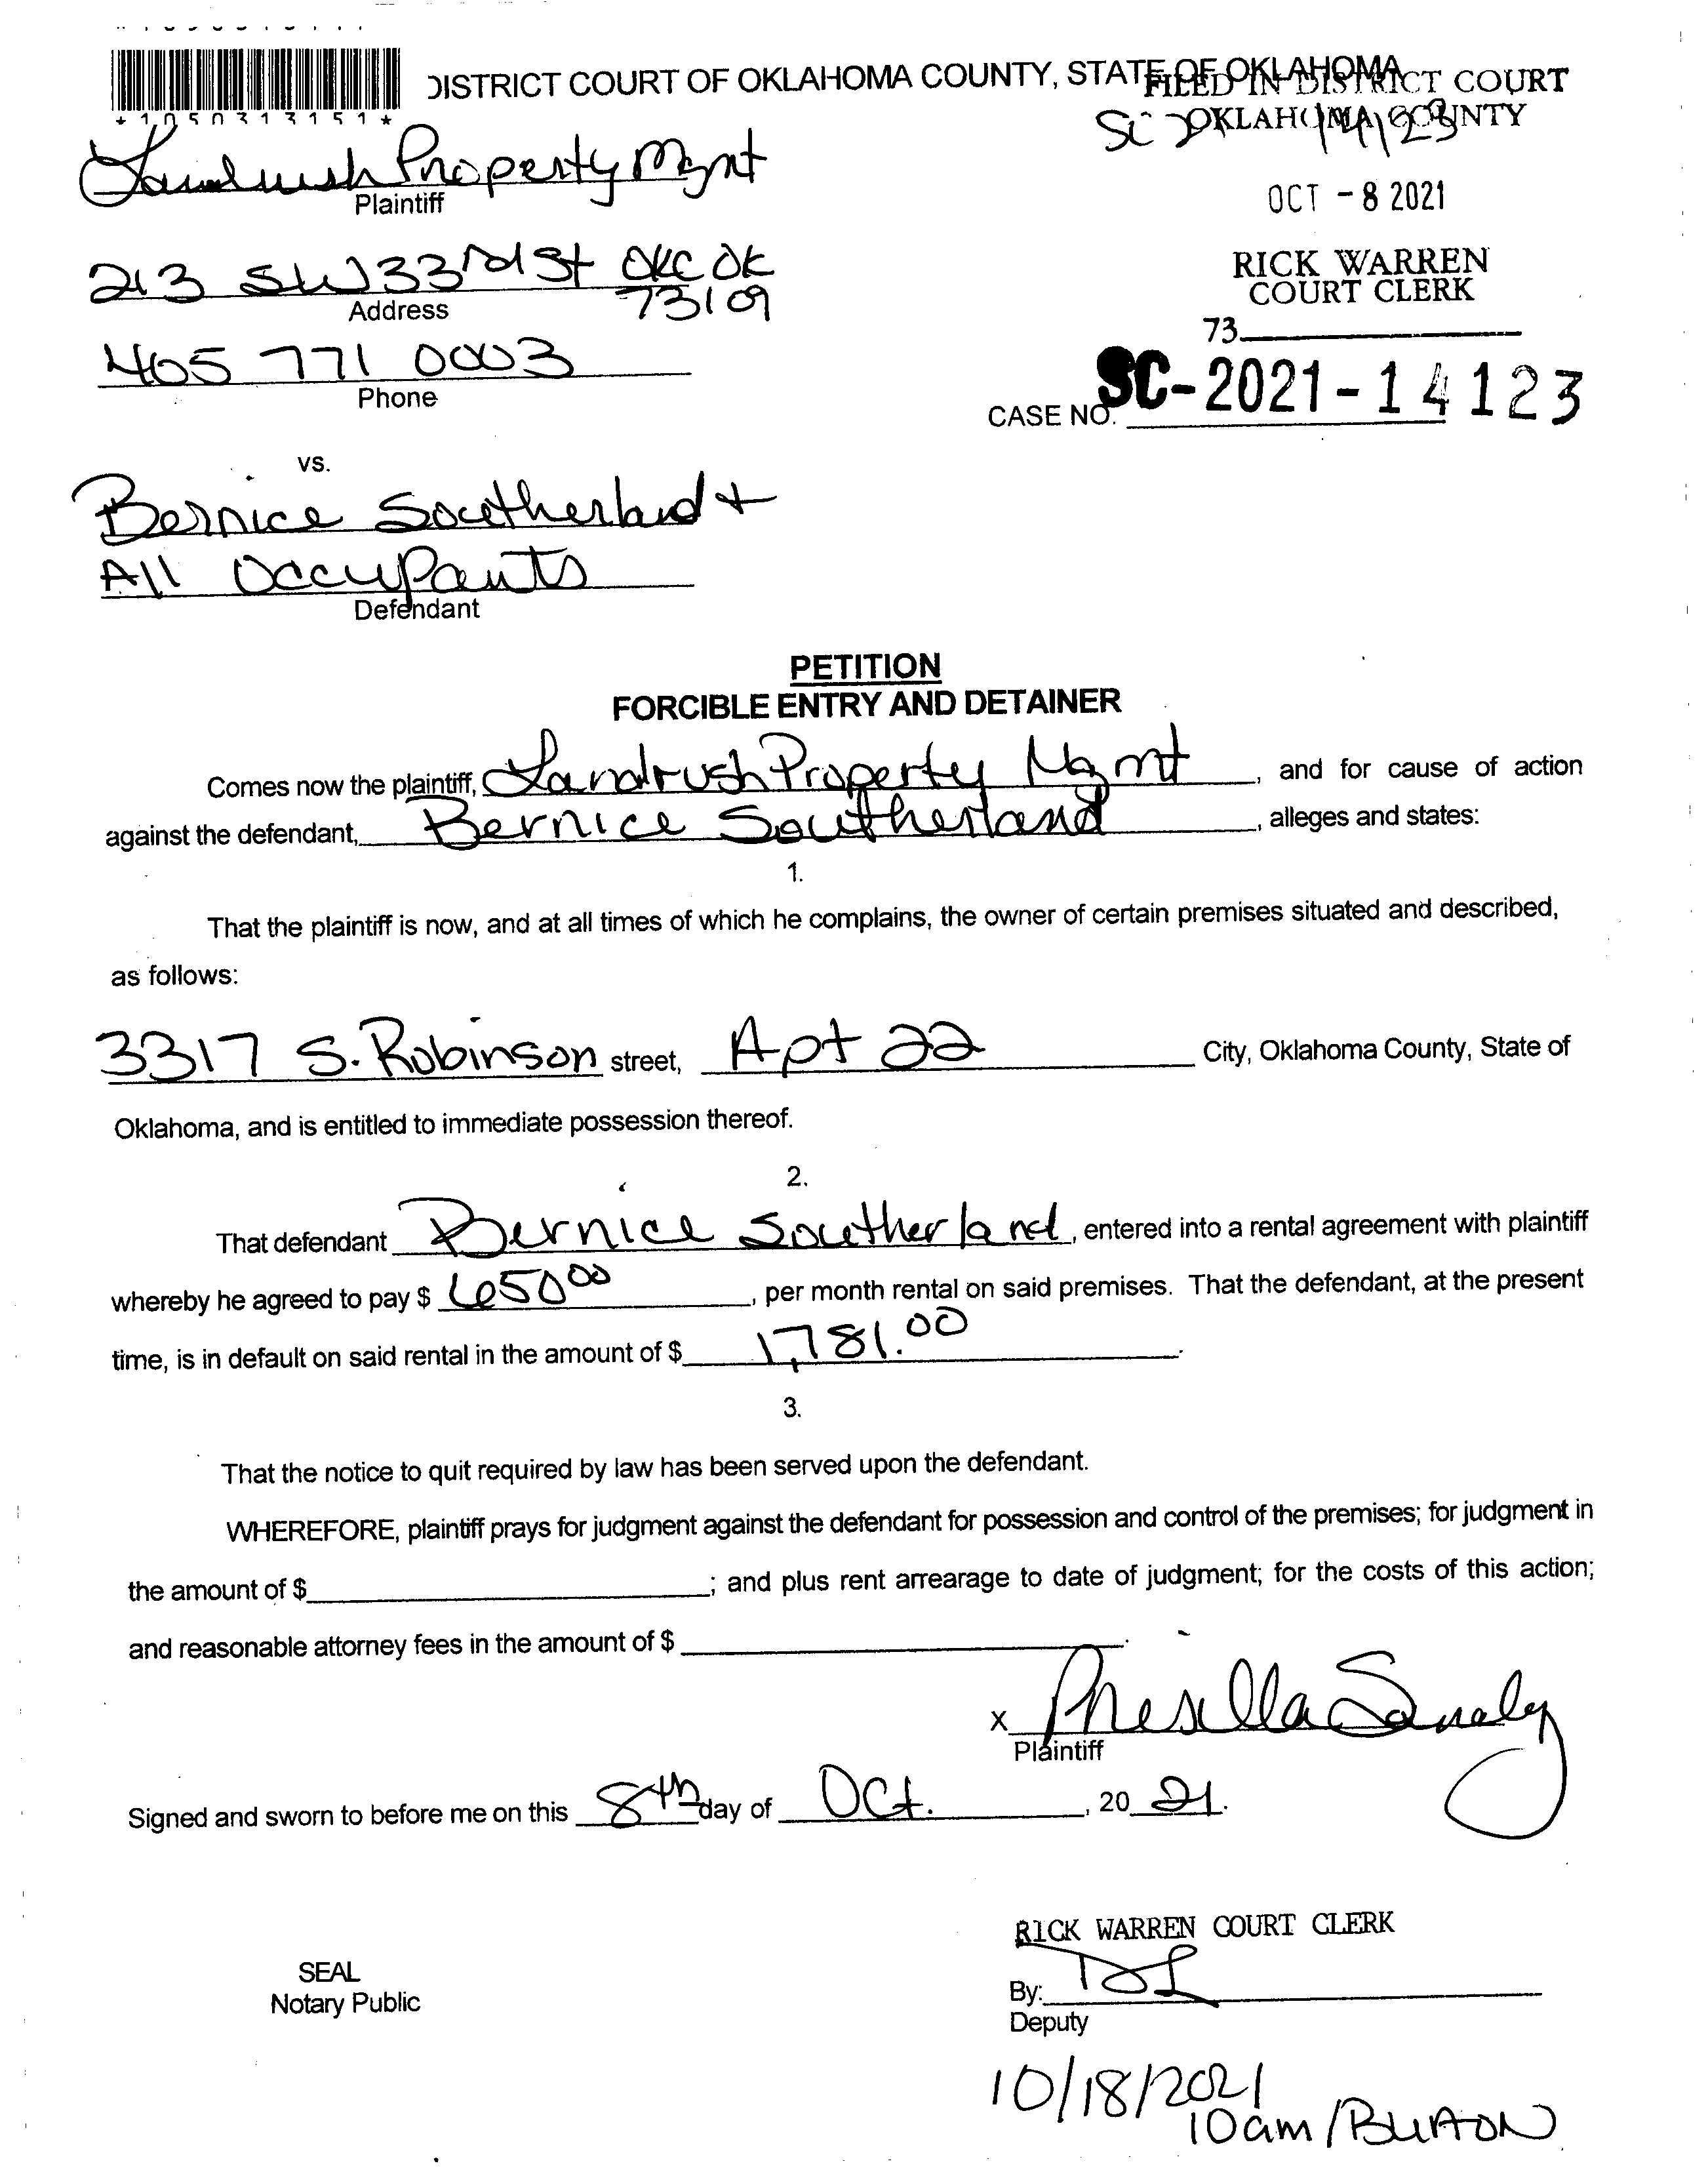 *1050313151*
DISTRICT COURT OF OKLAHOMA COUNTY, STATE OF OKLAHOMA
FILED IN DISTRICT COURT
OKLAHOMA COUNTY
SC 21 14123
Landrush Property Mgmt
Plaintiff
OCT - 8 2021
213 SW 33rd St OKC OK
73109
Address
RICK WARREN
COURT CLERK
73
405 771 0003
Phone
CASE NO. SC-2021-14123
vs.
Bernice Southerland +
All Occupants
Defendant
PETITION
FORCIBLE ENTRY AND DETAINER
Comes now the plaintiff, Landrush Property Mgmt, and for cause of action
against the defendant, Bernice Southerland, alleges and states:
1.
That the plaintiff is now, and at all times of which he complains, the owner of certain premises situated and described,
as follows:
3317 S. Robinson street, Apt 22 City, Oklahoma County, State of
Oklahoma, and is entitled to immediate possession thereof.
2.
That defendant Bernice Southerland, entered into a rental agreement with plaintiff
whereby he agreed to pay $ 650 00, per month rental on said premises. That the defendant, at the present
time, is in default on said rental in the amount of $ 1,781.00.
3.
That the notice to quit required by law has been served upon the defendant.
WHEREFORE, plaintiff prays for judgment against the defendant for possession and control of the premises; for judgment in
the amount of $ ; and plus rent arrearage to date of judgment; for the costs of this action;
and reasonable attorney fees in the amount of $ .
x
Plaintiff
Signed and sworn to before me on this 8th day of Oct., 20 21.
RICK WARREN COURT CLERK
SEAL
Notary Public
By:
Deputy
10/18/2021
10am/Burton